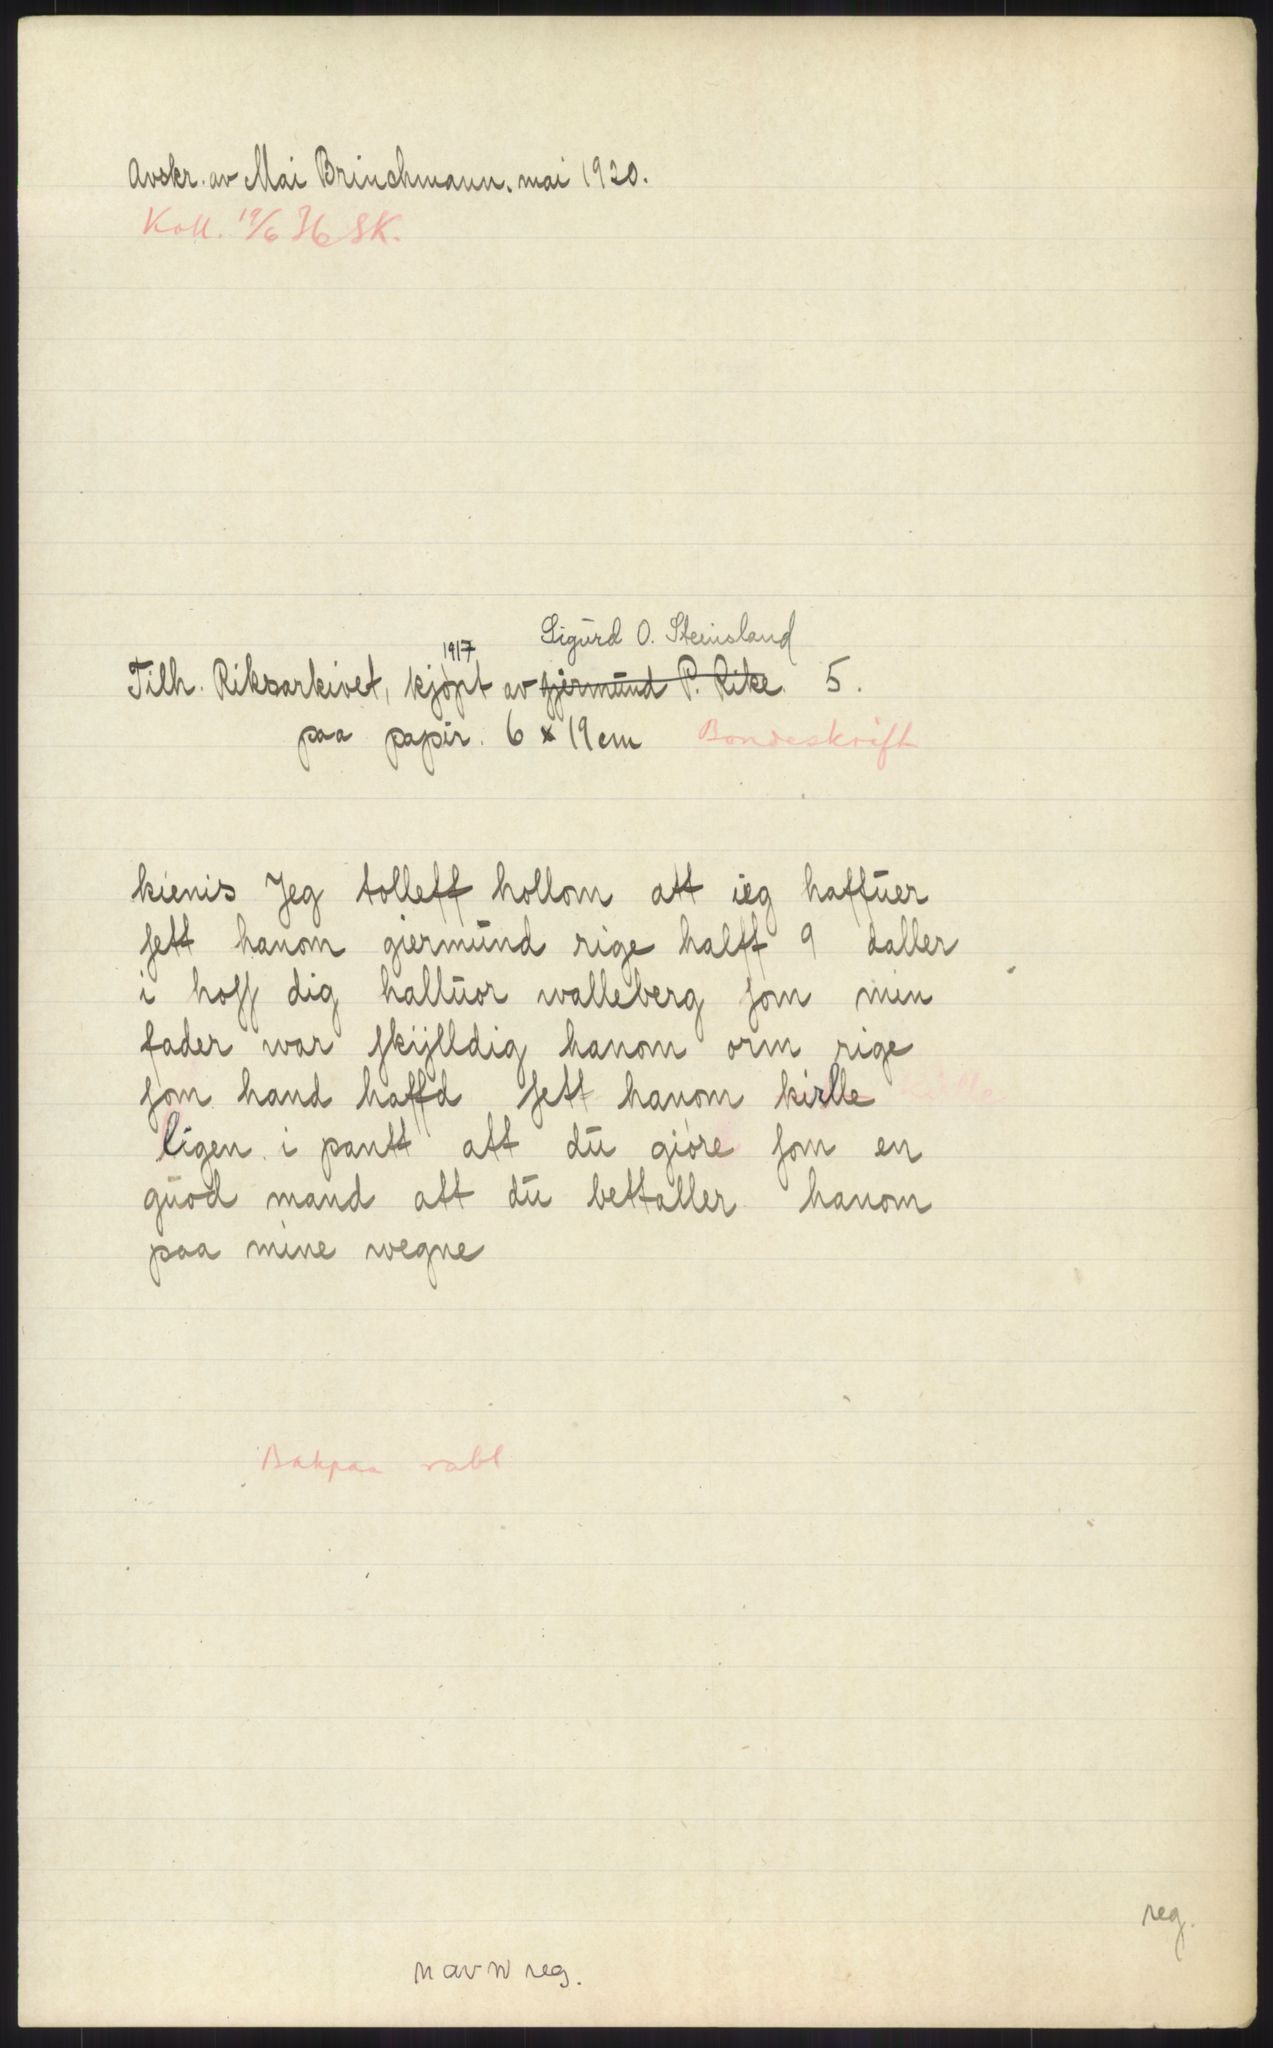 Avskr. av Mai Brinchmann. mai 1920.
Koll. 19/6 36 SK.
Sigurd O. Steinsland
1917
Tilh. Riksarkivet, kjøpt av Gjermund P. Rike. 5.
paa papir. 6 x 19 cm Bondeskrift
kienis Jeg tolleff hollom att ieg haffuer
sett hanom giermund rige halff 9 daller
i hoss dig halluor walleberg som min
fader war skijlldig hanom orm rige
som hand haffd sett hanom kirlle
ligen i pantt att du giøre som en
guod mand att du bettaller hanom
paa mine wegne
Bakpaa rabl
reg.
navn reg.